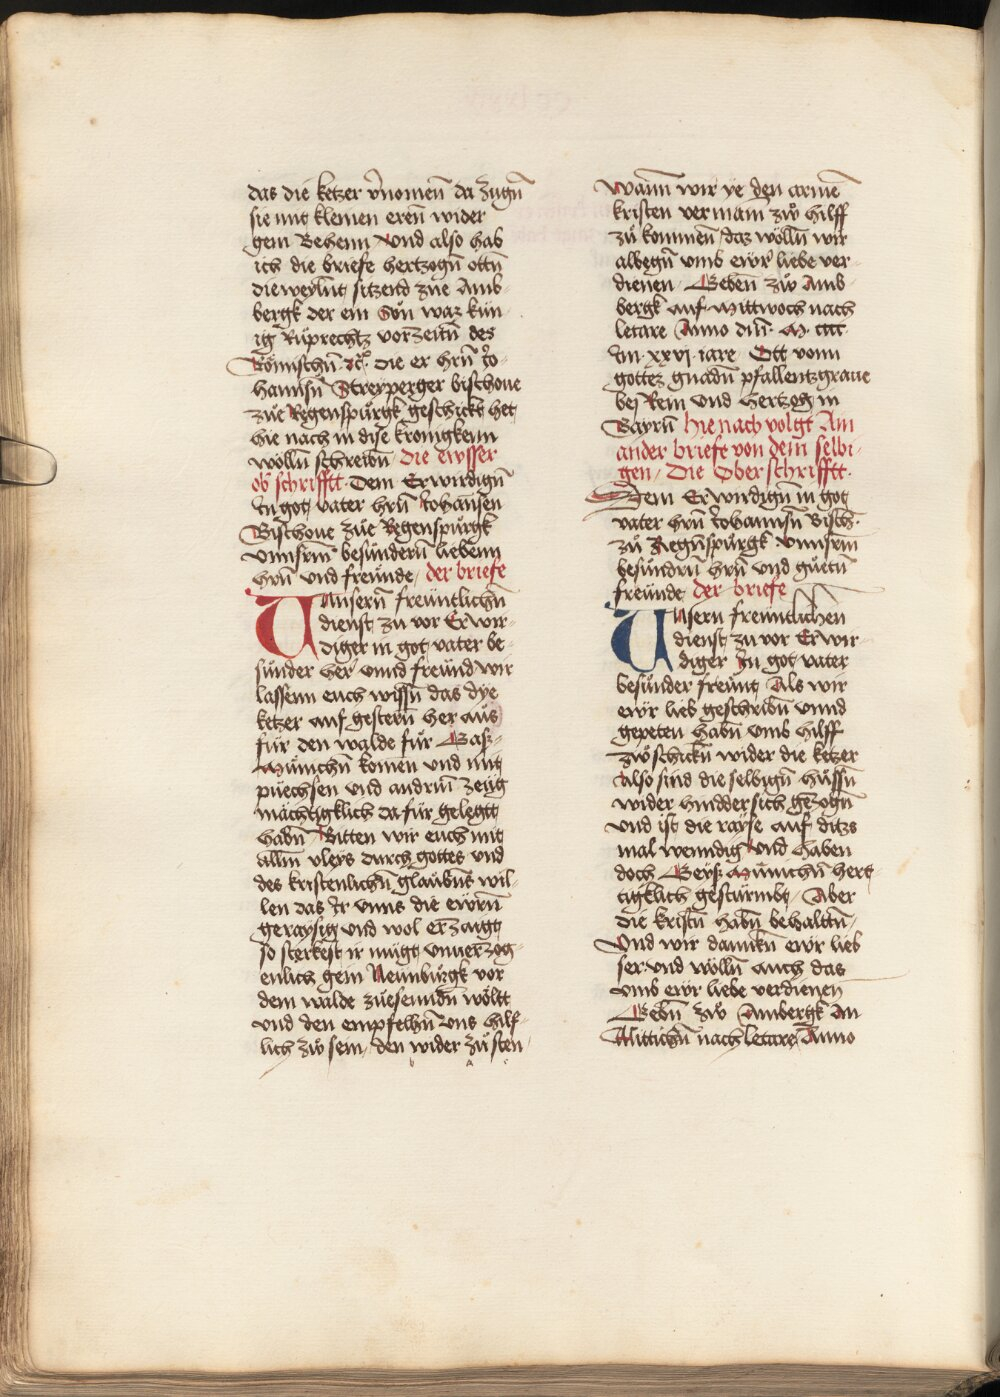 das die ketzer v̄nomen̄ da zugn̄
sie mit kleinen eren̄ wider
gein Behenn Vnd also hab
ich die briefe hertzogn̄ ottn̄
die weylnt sitzend zue Amb-
bergk der ein Sůn waz kün
ig Rüprechtz vorzeitn̄ des
Römischn̄ ꝛc̄ die er hrn̄ Jo-
hannsn̄ Streyperger bischoue
zůe Regenspürgk geschickt het
hie nach in dise kronigkenn
wölln̄ schreibn̄ die ewsser
ob schrifftt Dem Erwirdign̄
Jn got vater hrn̄ Johansen
Bischoue züe Regenspürgk
vnnserm besündern̄ liebenn
hrn̄ vnd freünde der briefe
Vnnsern̄ freüntlichn̄
dienst zu vor Erwir-
diger in got vater be-
sünder her vnnd freünd wir
lassenn euch wissn̄ das dye
ketzer auf gestern̄ her aüs
für den walde für Wasz-
Münichn̄ komen vnd mit
püechsen vnd andrm̄ zeüg
mächtigklich da für gelegtt
habn̄ Bitten wir euch mit
allm̄ vleys durch gottes vnd
des kristenlichn̄ glaübns wil-
len das Jr vnns die ewrn̄
geraysig vnd wol erzaigt
so sterkest ir mügt vnuerzog-
enlich gein Neünbürgk vor
dem walde züesenndn̄ wöltt
vnd den empfelhn̄ vns hilf-
lich zů sein den wider zů sten
Wann wir ye den armē
kristen vermain zů hilff
zü kommen daz wölln̄ wir
albegn̄ vmb ewr liebe ver-
dienen Geben̄ zů Amb-
bergk auf Mittwoch nach
letare Anno dn̄i M cccc
Jm xxvj iare Ott vonn
gottez gnadn̄ pfallentzgraue
bej Rein vnd hertzog in
Bayrn̄ hie nach volgt Ain
ander briefe von dem selbi-
gen Die Oberschrifftt
Dem Erwirdign̄ in got
vater hrn̄ Johannsn̄ Bisch
zů Regn̄spürgk vnnserm
besündrn̄ hrn̄ vnd güetn̄
freünde der briefe
Vnsern freüntlichen
dienst zu vor Erwir-
diger Jn got vater
besünder freünt Als wir
ewr lieb geschribn̄ vnnd
gepeten habn̄ vmb hilff
zůschickn̄ wider die ketzer
Also sind die selbign̄ hüssn̄
wider hinddersich gezogn̄
vnd ist die rayse auf ditzs
mal wenndig vnd haben
doch Weysz Münichn̄ hert-
tigklich gestürmbt Aber
die kristn̄ habn̄ behalttn̄
Vnd wir dannckn̄ ewr lieb
ser vnd wölln̄ auch das
vmb ewr liebe verdienen
Gebn̄ zů Ambergk An
Mittichn̄ nach letare Anno